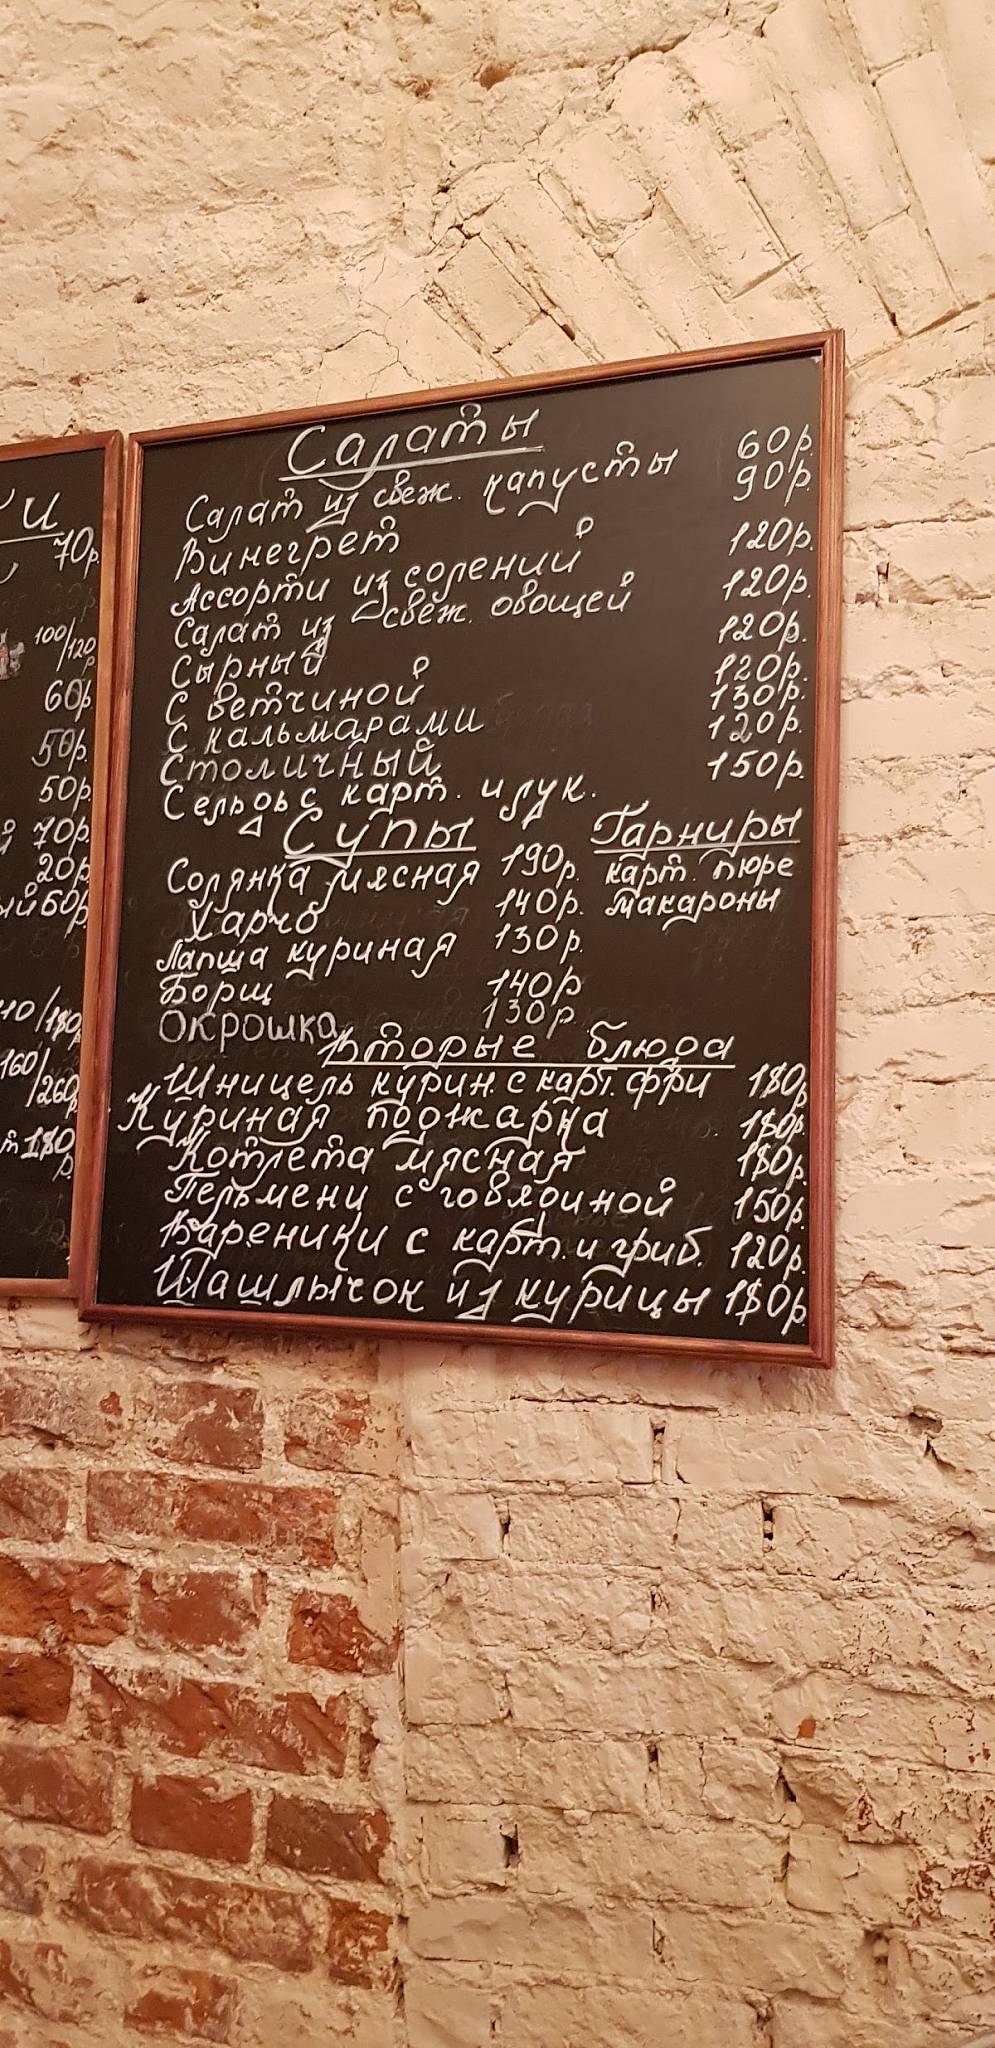 и
70р.
100/120р
60р
50р.
50р.
й 70р.
20р.
ый 60р.
110/180р
160/260р
т 180р.
Салаты
Салат из свеж. капусты 60р.
Винегрет 90р.
Ассорти из солений 120р.
Салат из свеж. овощей 120р.
Сырный 120р.
С ветчиной 120р.
С кальмарами 130р.
Столичный 120р.
Сельдь с карт. и лук. 150р.
Супы Гарниры
Солянка мясная 190р. карт. пюре
Харчо 140р. Макароны
Лапша куриная 130р.
Борщ 140р
ОКРОШКА 130р.
Вторые блюда
Шницель курин. с карт. фри 180р.
Куриная поджарка 180р.
Котлета мясная 180р.
Пельмени с говядиной 150р.
Вареники с карт. и гриб. 120р.
Шашлычок из курицы 180р.